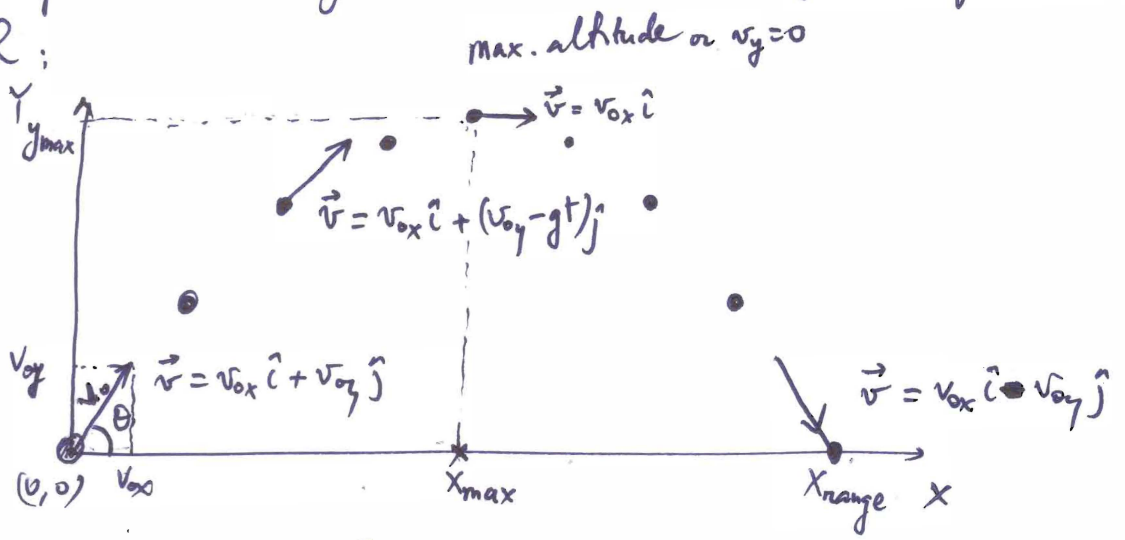 2;
max. altitude or v_y=0
Y
y_max
v⃗ = v_ox î
v⃗ = v_ox î + (v_oy-gt)ĵ
v_oy
v⃗ = v_ox î + v_oy ĵ
θ
v⃗ = v_ox î v_oy ĵ
(0,0)
v_ox
x_max
x_range
x